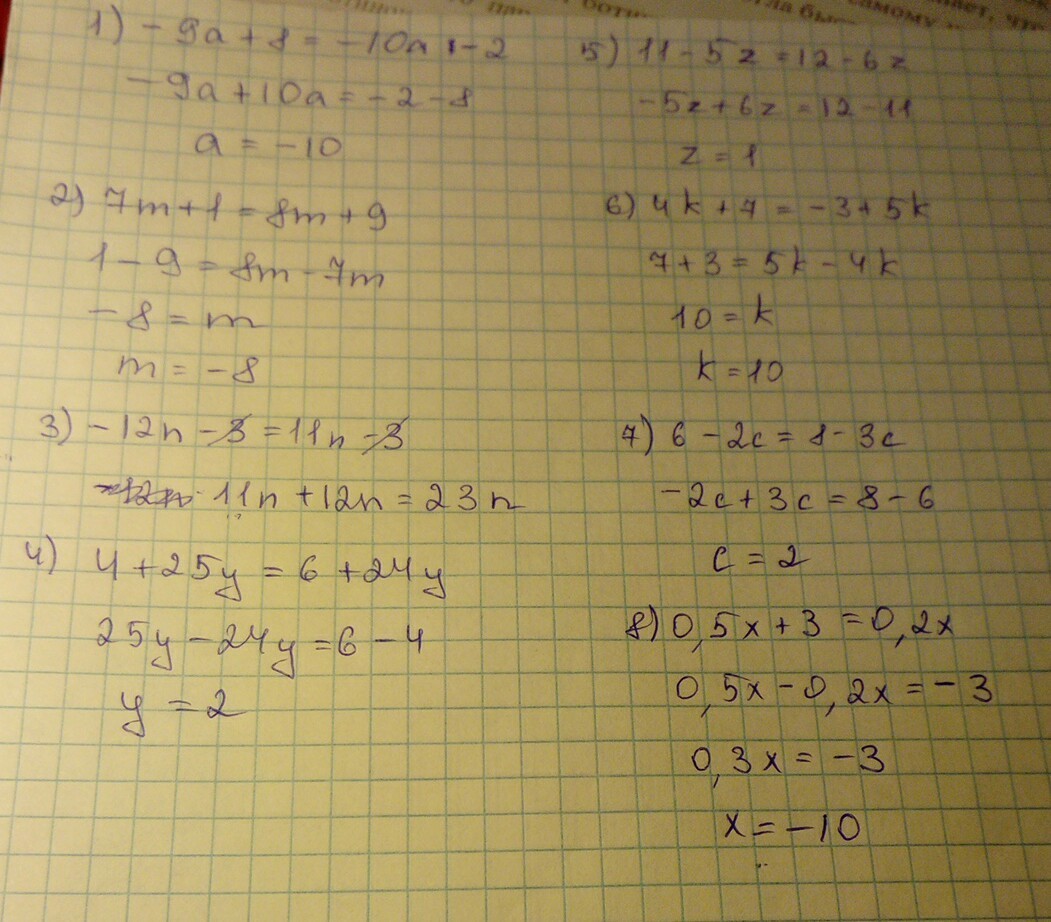 1) -9a+8=-10a-2
-9a+10a=-2-8
a=-10
2) 7m+1=8m+9
1-9=8m-7m
-8=m
m=-8
3) -12n-3=11n-3
11n+12n=23n
4) 4+25y=6+24y
25y-24y=6-4
y=2
5) 11-5z=12-6z
-5z+6z=12-11
z=1
6) 4k+7=-3+5k
7+3=5k-4k
10=k
k=10
7) 6-2c=8-3c
-2c+3c=8-6
c=2
8) 0,5x+3=0,2x
0,5x-0,2x=-3
0,3x=-3
x=-10